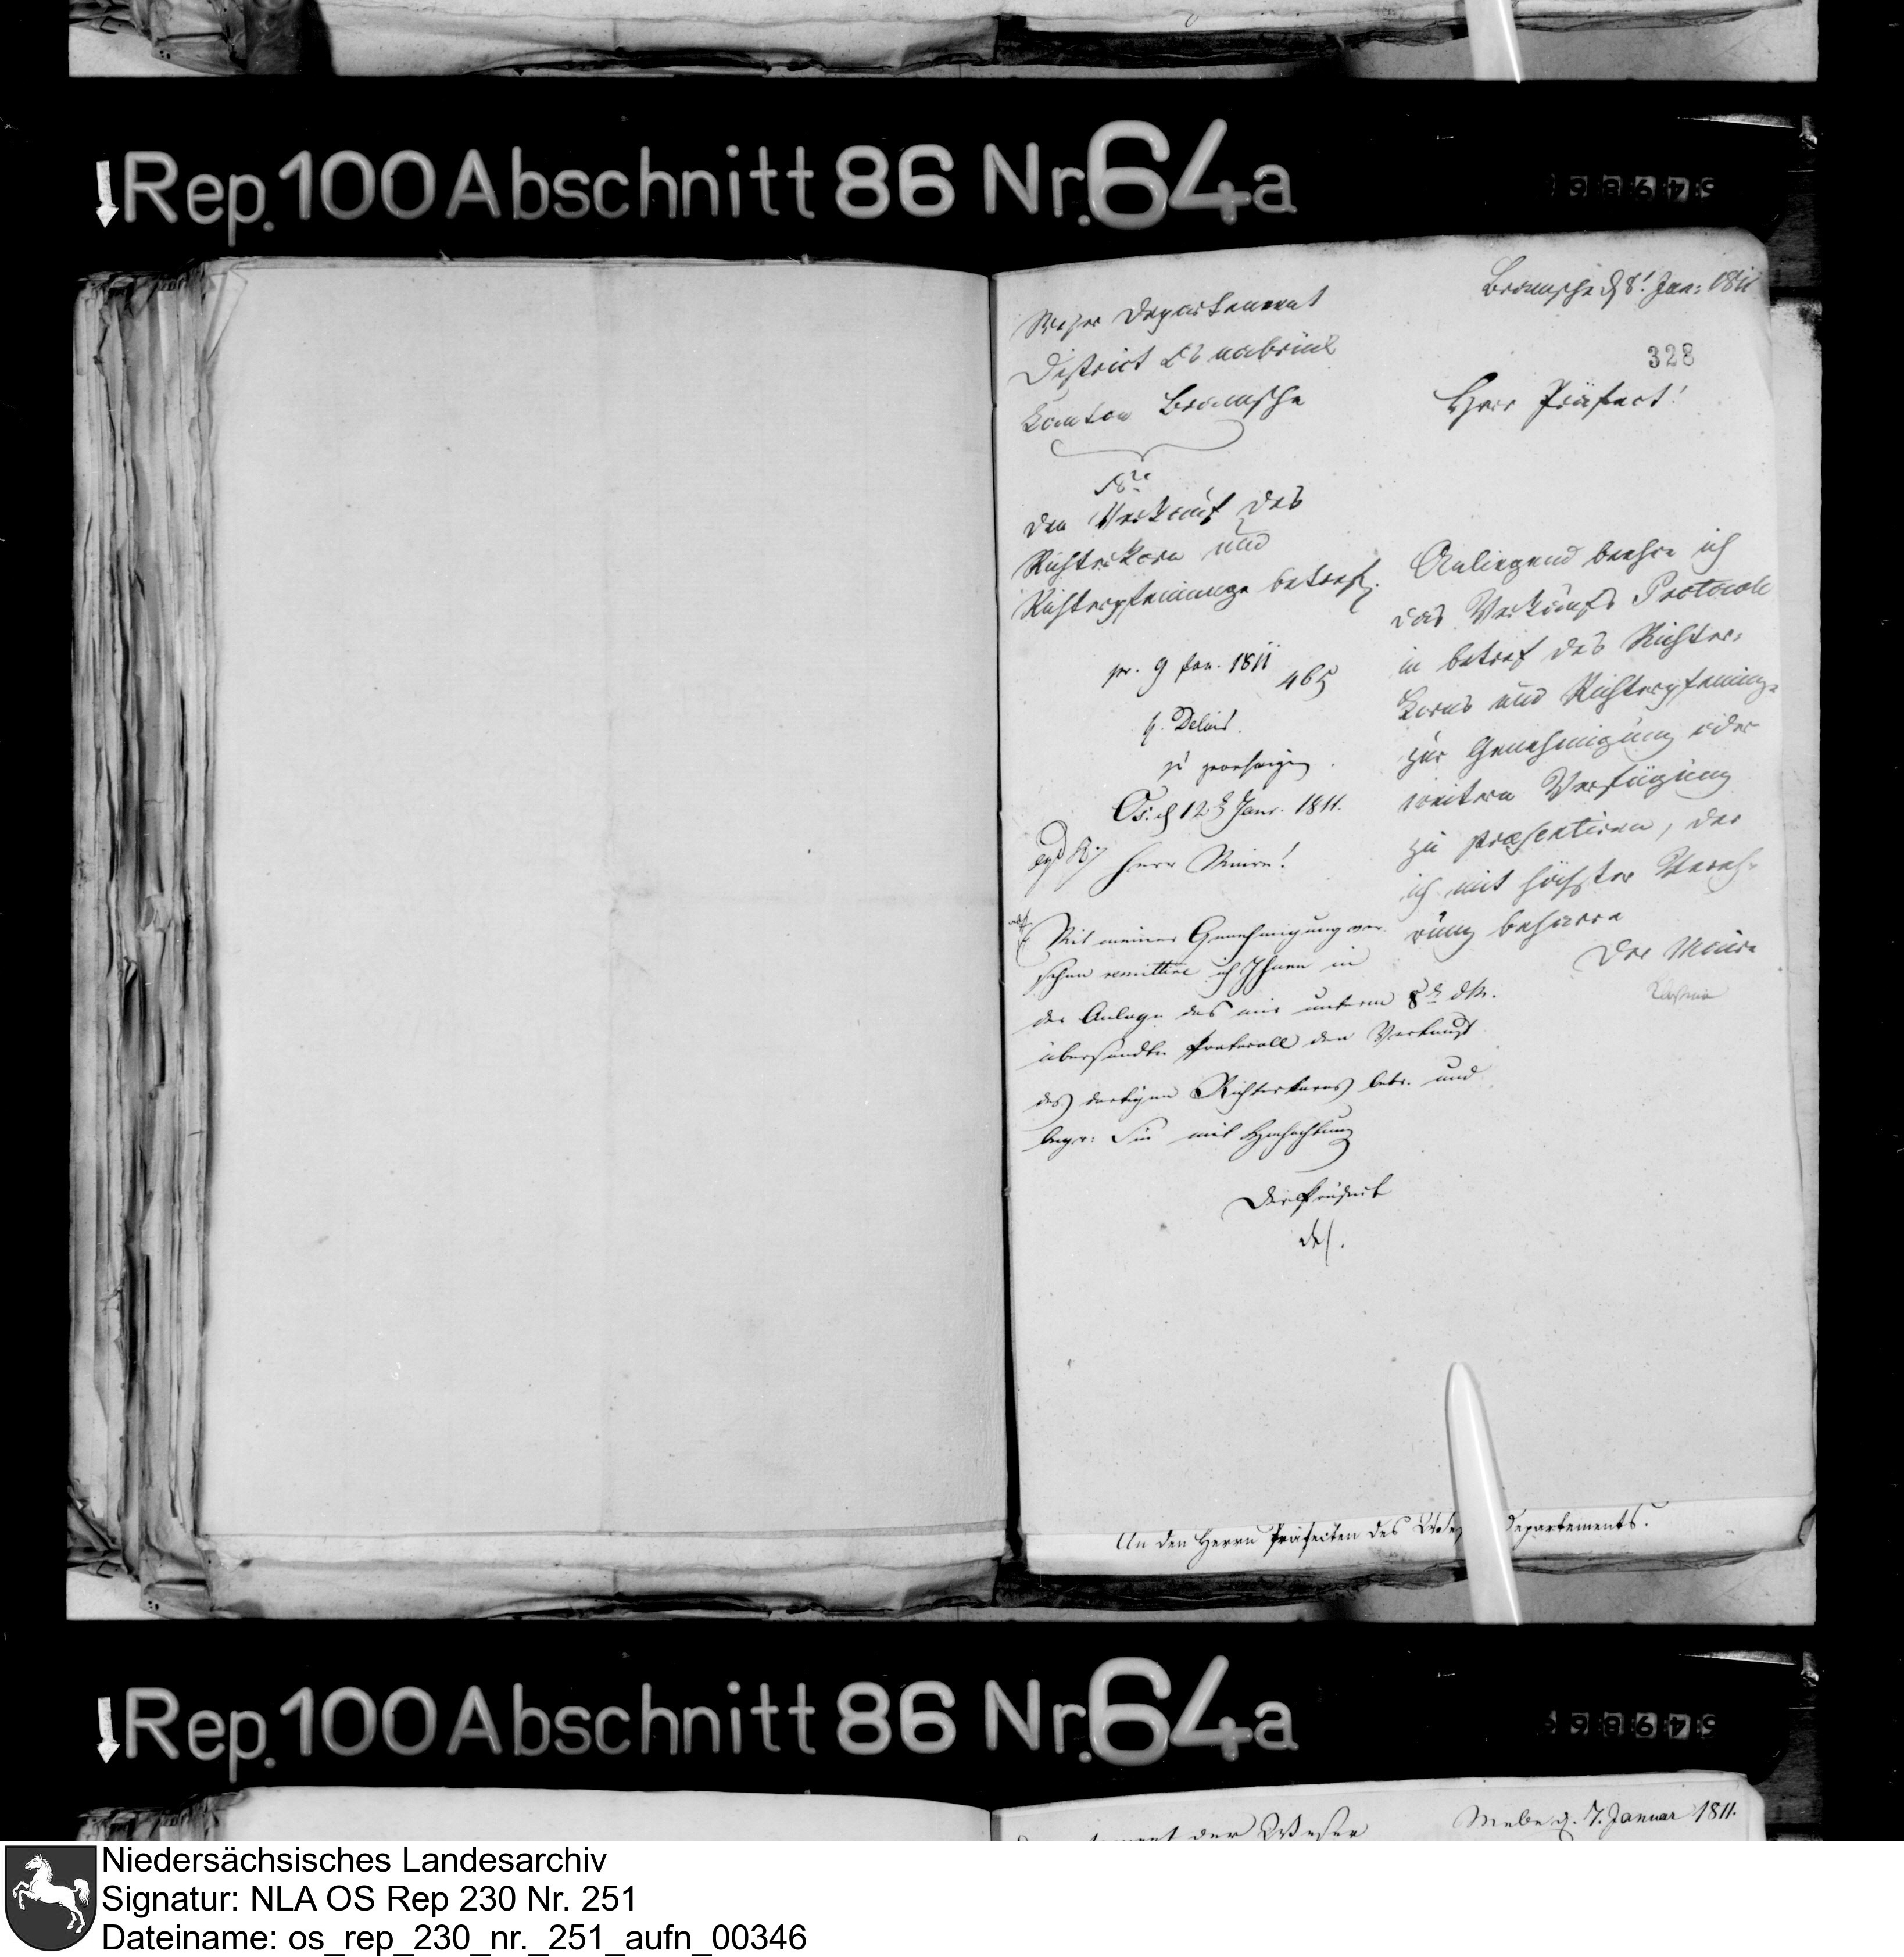 Rep. 100 Abschnitt 86 Nr. 64a
Bramsche d 8t Jan: 1811
Weser Departement
District Osnabrück
Kanton Bramsche
328
Herr Präfect!
den Verkauf des
Richterkorn und
Richterpfenninge betreff.
Anliegend beehre ich
das Verkaufs Protocoll
in betref des Richter-
korns und Richterpfenninge
zur Genehmigung oder
weitern Verfügung
zu præsentiren, der
ich mit höchster Vereh-
rung beharre
Der Maire
pr. 9 Jan. 1811
465
H. Delius.
zu genehmigen.
Os: d 12t Janr. 1811.
Herr Maire!
Mit meiner Genehmigung ver-
sehen remittire ich Ihnen in
der Anlage das mir unterm 8t d. M.
übersandte Protocoll den Verkauf
des dortigen Richterkorns betr. und
Sie mit Hochachtung
Der Präfect
An den Herrn Präfecten des Weser Departements.
Rep. 100 Abschnitt 86 Nr. 64a
der Weser
Melle d. 7. Januar 1811.
Niedersächsisches Landesarchiv
Signatur: NLA OS Rep 230 Nr. 251
Dateiname: os_rep_230_nr._251_aufn_00346